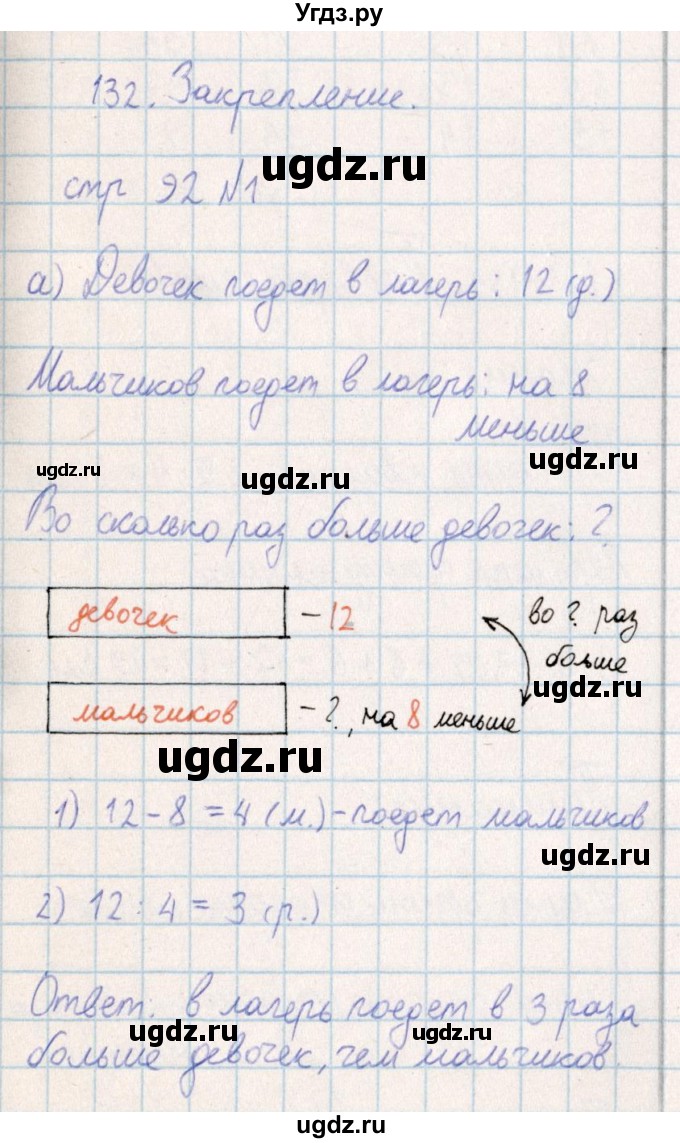 Угдз.ру
132. Закрепление.
ugdz.ru
стр 92 №1
а) Девочек поедет в лагерь: 12 (д.)
ugdz.ru
Мальчиков поедет в лагерь: на 8
меньше
ugdz.ru
ugdz.ru
ugdz.ru
Во сколько раз больше девочек: ?
девочек - 12
во ? раз
больше
ugdz.ru
мальчиков - ?, на 8 меньше
ugdz.ru
1) 12 - 8 = 4 (м.) - поедет мальчиков
ugdz.ru
2) 12 : 4 = 3 (р.)
Ответ: в лагерь поедет в 3 раза
ugdz.ru
больше девочек, чем мальчиков.
ugdz.ru
ugdz.ru